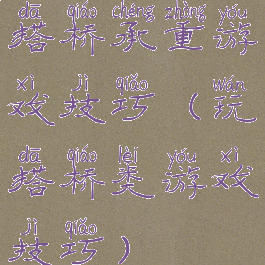 dā qiáo chéng zhòng yóu
搭桥承重游
xì jì qiǎo wán
戏技巧（玩
dā qiáo lèi yóu xì
搭桥类游戏
jì qiǎo
技巧）